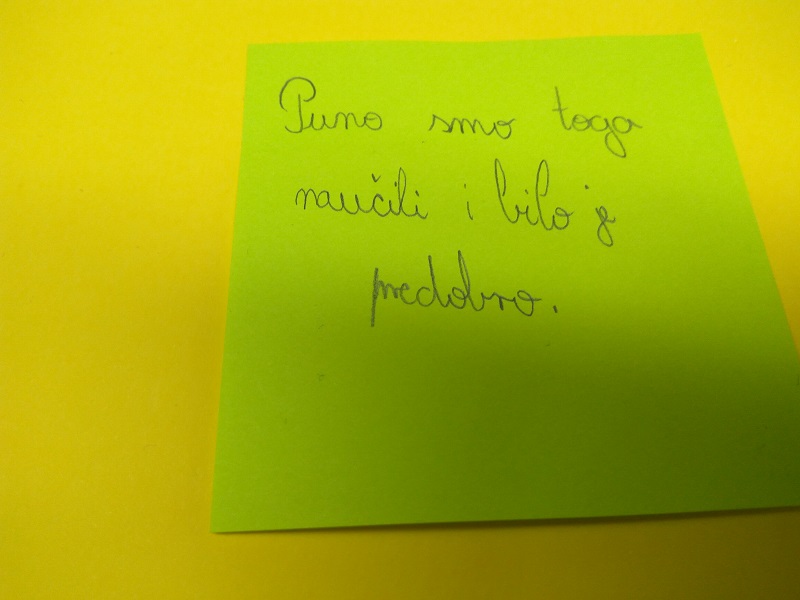 Puno smo toga
naučili i bilo je
predobro.